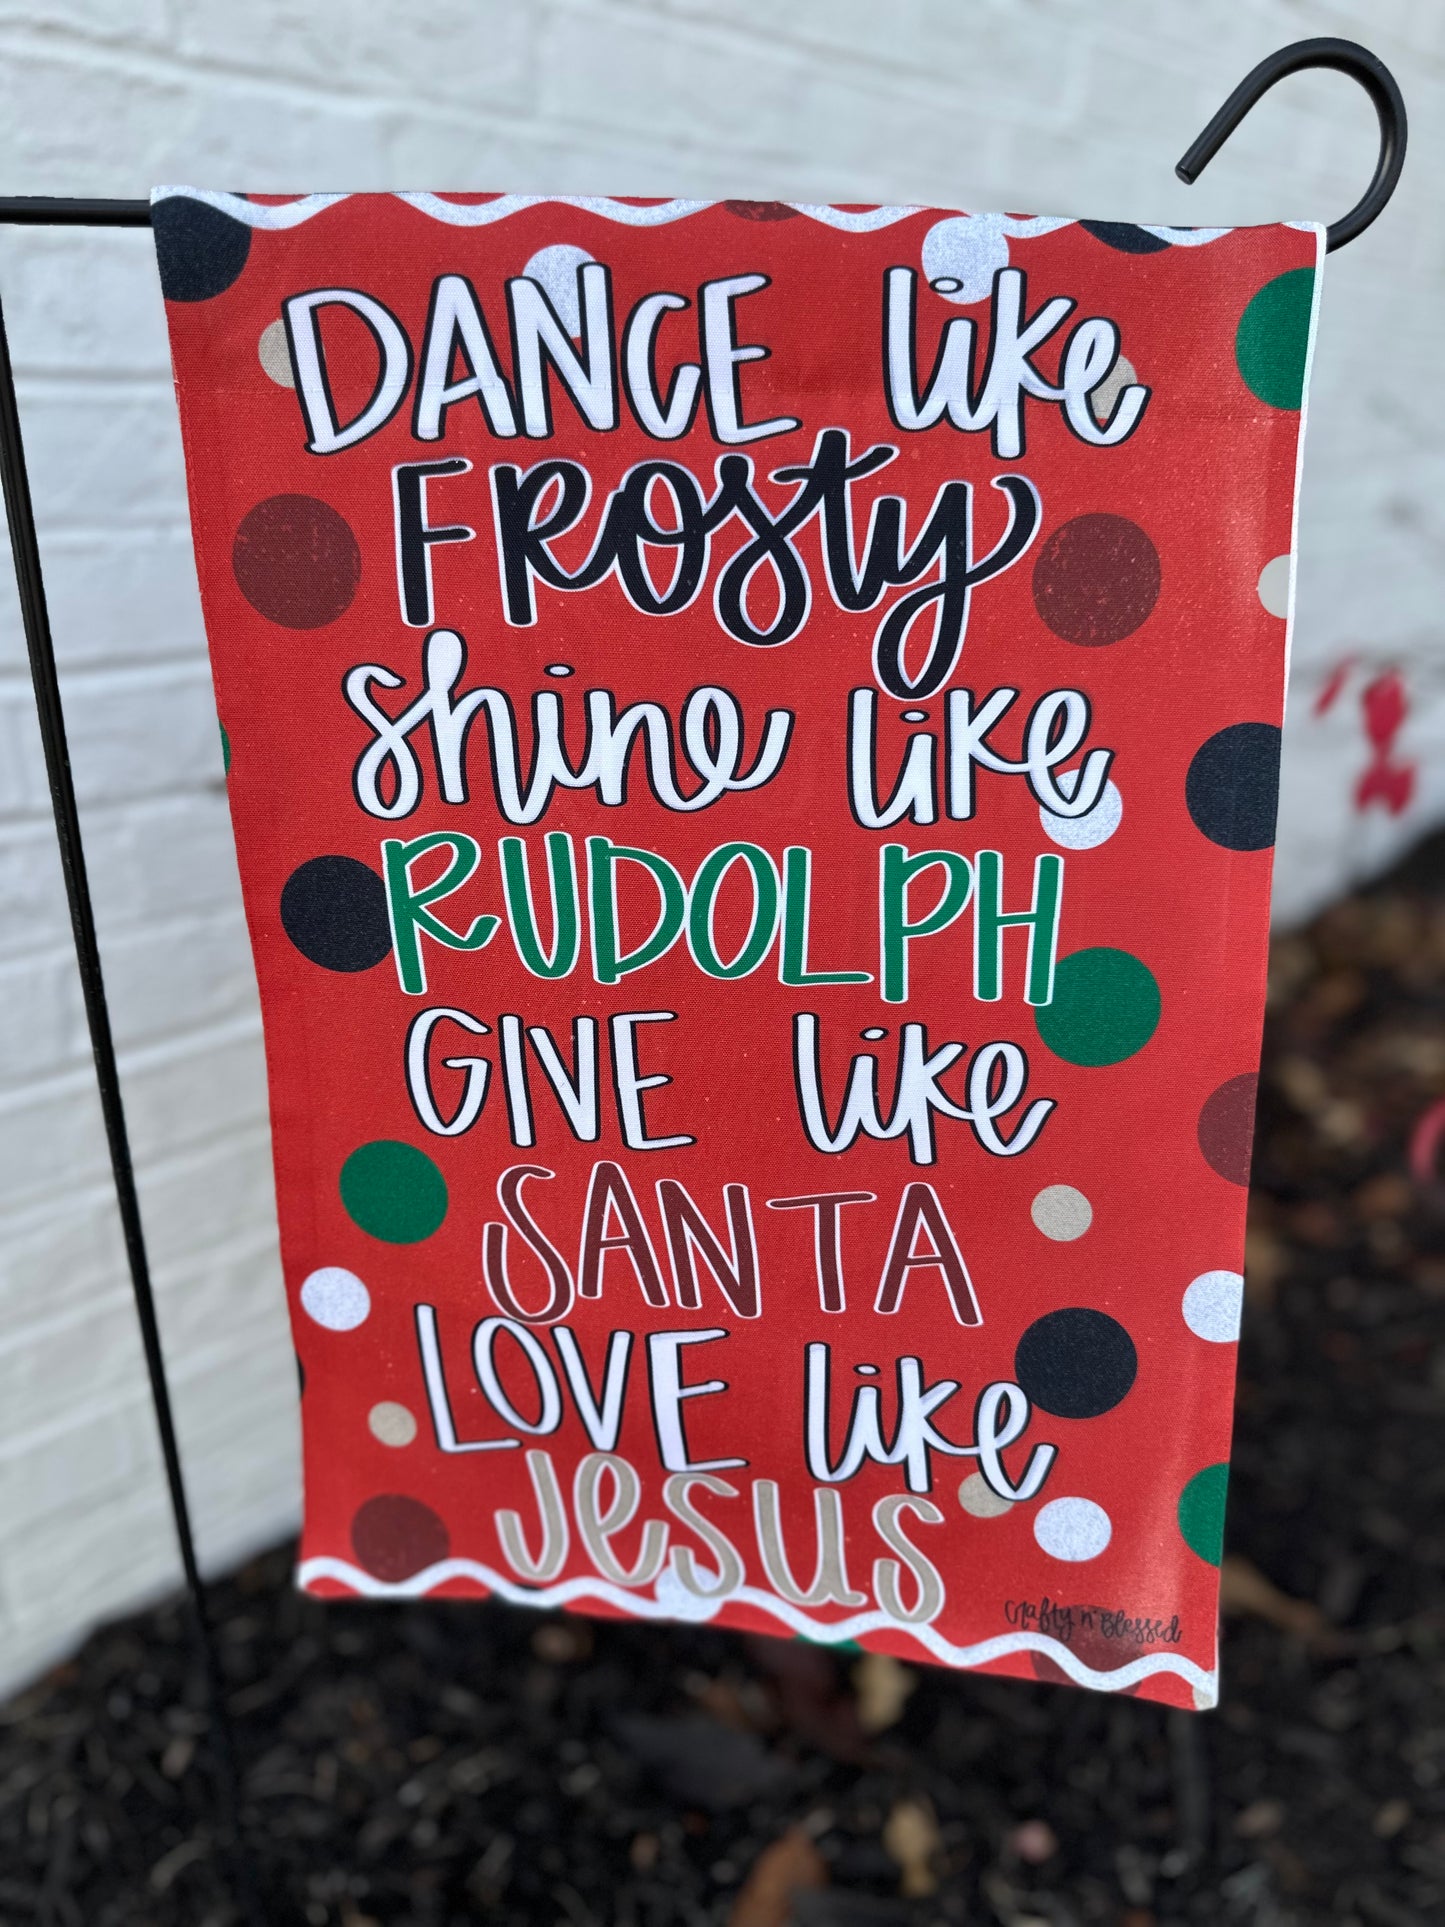 DANCE like
FROSTY
shine like
RUDOLPH
GIVE like
SANTA
LOVE like
Jesus
Crafty n' Blessed